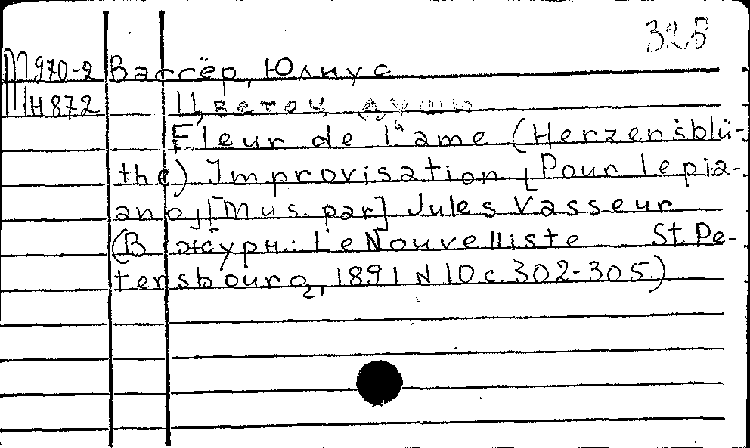 325
М 970-2 Вассёр, Юлиус
М Н872 Цветок души
Fleur de l'ame (Herzensblü-
the) Improvisation [Pour le pia-
ano, [Mus. par] Jules Vasseur
(В журн: Le Nouvelliste St. Pe-
tersbourg, 1891 N 10 с. 302-305)